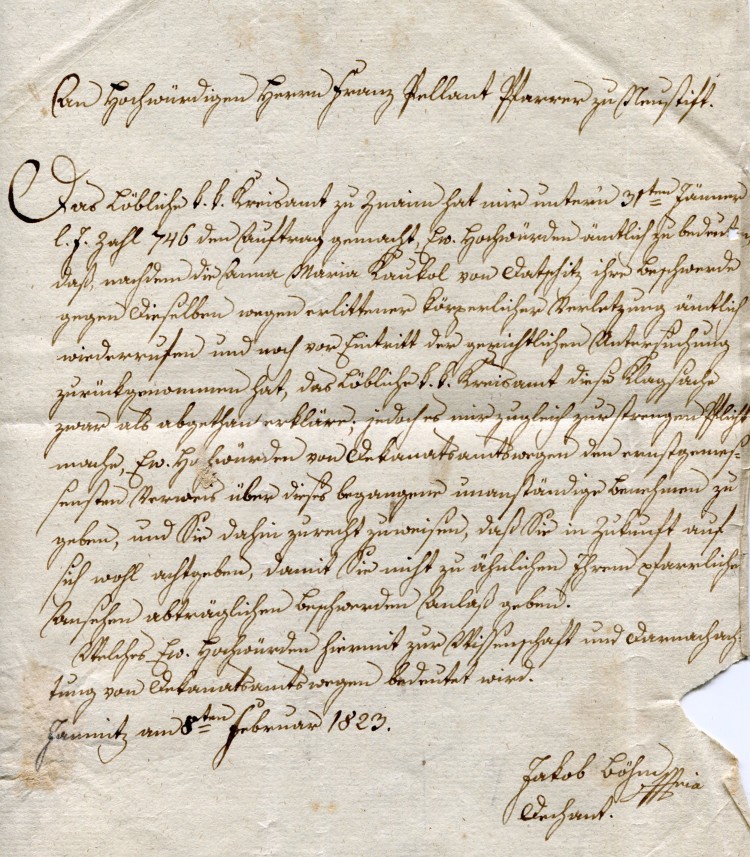 An Hochwürdigen Herrn Franz Pellant Pfarrer zu Neustift.
Das Löbliche k. k. Kreisamt zu Znaim hat mir unterm 31ten Jänner
l. J. Zahl 746 den Auftrag gemacht, Ew. Hochwürden ämtlich zu bedeuten
daß, nachdem die Anna Maria Kaukol von Datschitz ihre Beschwerde
gegen Dieselben wegen erlittener körperlicher Verletzung ämtlich
wiederrufen und noch vor Eintritt der gerichtlichen Untersuchung
zurückgenommen hat, das Löbliche k. k. Kreisamt diese Klagsache
zwar als abgethan erkläre; jedoch es mir zugleich zur strengen Pflicht
mache, Ew. Hochwürden von Dekanatsamtswegen den ernstgemes-
sensten Verweis über dieses begangene unanständige Benehmen zu
geben, und Sie dahin zurecht zuweisen, daß Sie in Zukunft auf
sich wohl achtgeben, damit Sie nicht zu ähnlichen Ihrem pfarrlichen
Ansehen abträglichen Beschwerden Anlaß geben.
Welches Ew. Hochwürden hiermit zur Wissenschaft und Darnachach-
tung von Dekanatsamtswegen bedeutet wird.
Jamnitz am 8ten Februar 1823.
Jakob Böhm mpria
Dechant.